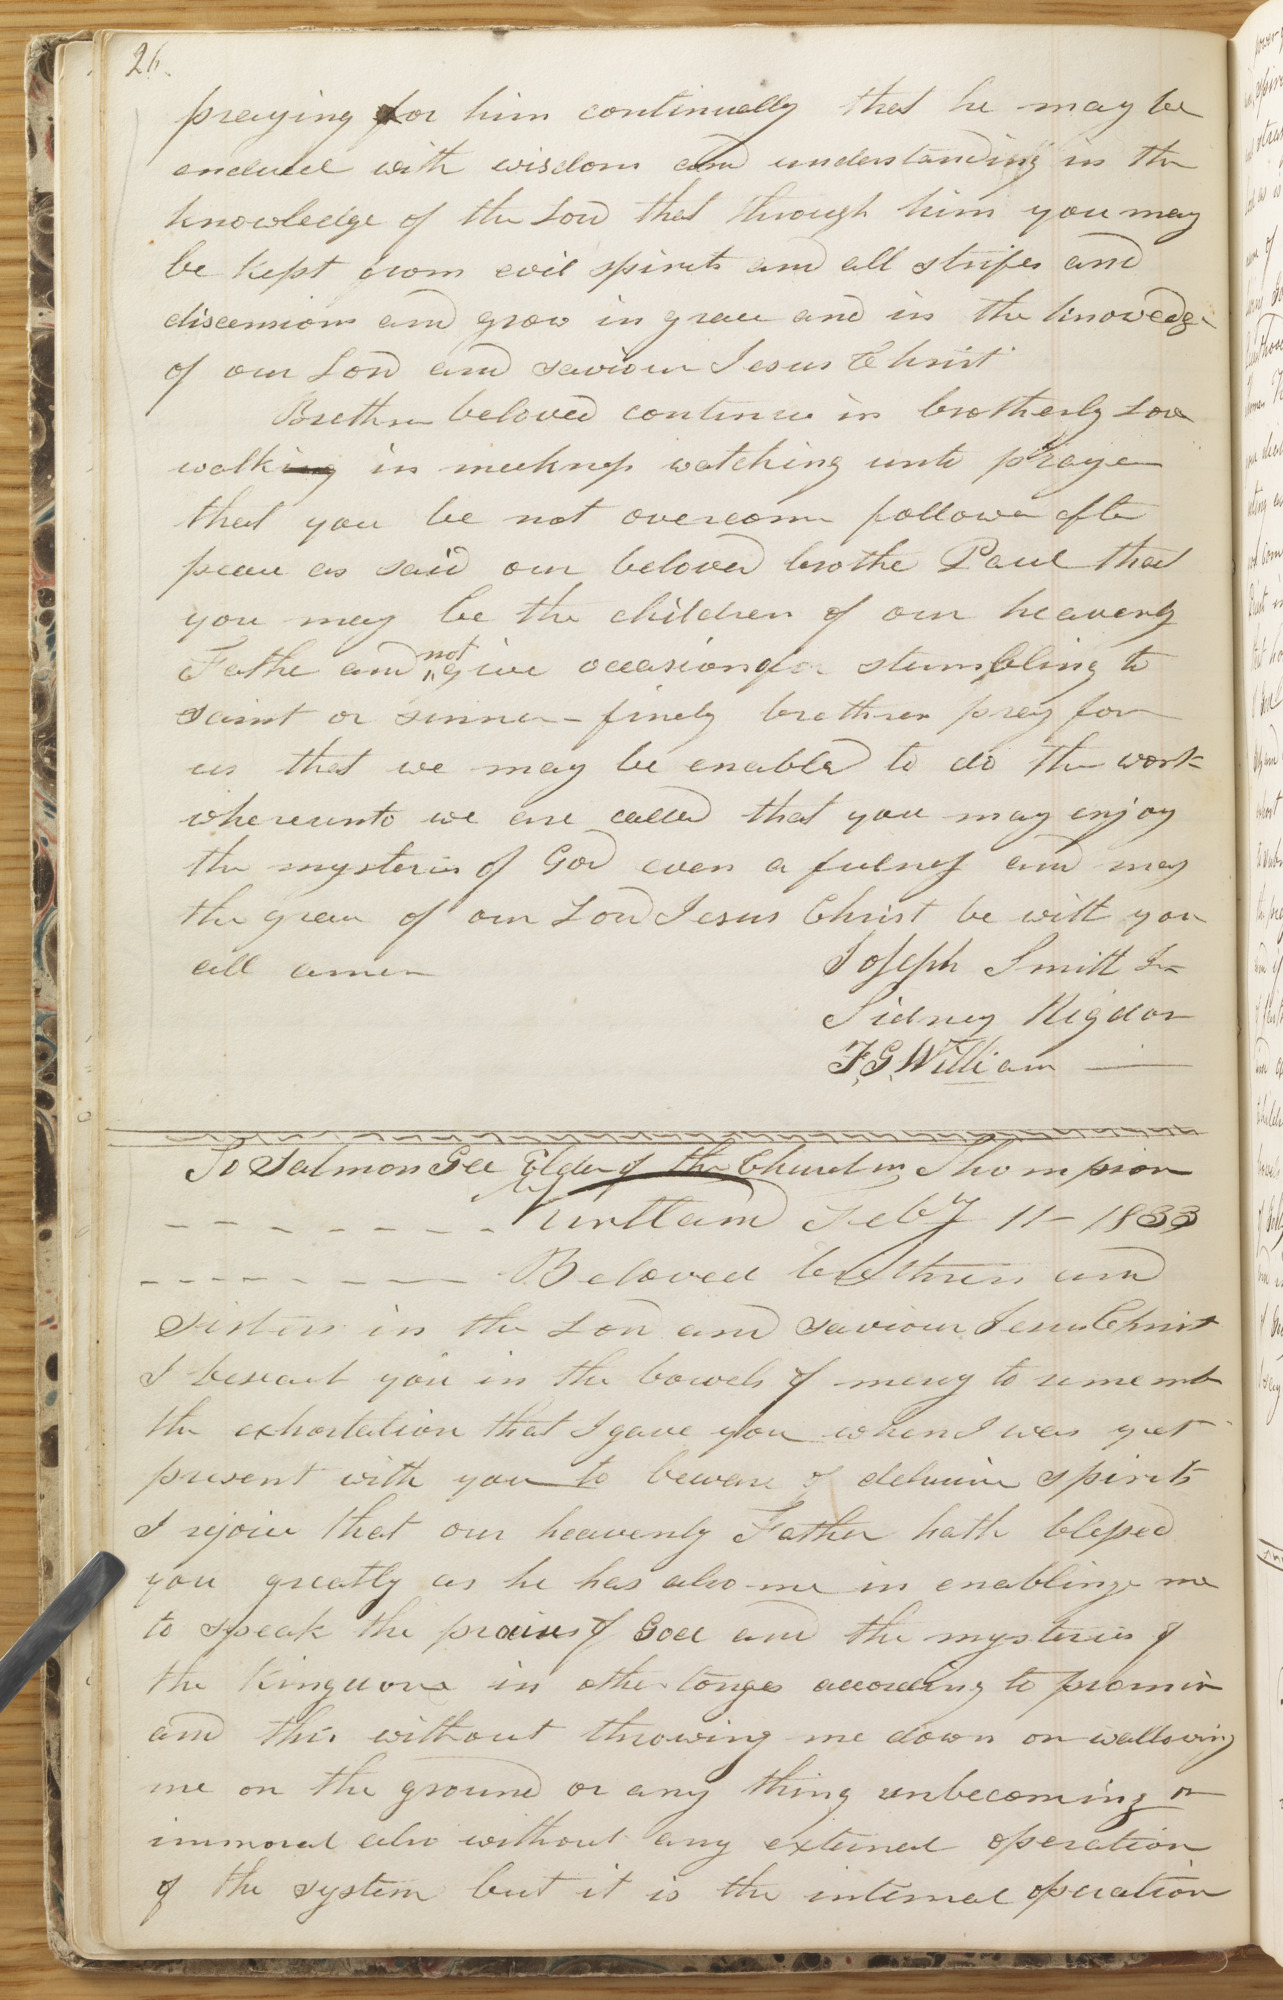 26.
praying for him continually that he may be
endued with wisdom and understanding in the
knowledge of the Lord that through him you may
be kept from evil spirits and all strifes and
discensions and grow in grace and in the knowedge
of our Lord and saviour Jesus Christ
Brethren beloved continue in brotherly Love
walking in meekness watching unto prayer
that you be not overcome follow after
peace as said our beloved brothe Paul that
you may be the children of our heavenly
Fathe and not give occasion for stumbling to
saint or sinner - finely brethren pray for
us that we may be enabled to do the work
whereunto we are called that you may enjoy
the mysteries of God even a fulness and may
the grace of our Lord Jesus Christ be with you
all amen Joseph Smith Jr
Sidney Rigdon
F, G, William
To Salmon Gee Elder of the Church in Thompson
Kirtland Feby 11 - 1833
Beloved brethren and
Sisters in the Lord and saviour Jesus Christ
I beseach you in the bowels of mercy to rememb
the exhortation that I gave you when I was yet
present with you to beware of delusive spirits
I rejoice that our heavenly Father hath blessed
you greatly as he has also me in enabling me
to speak the praises of God and the mysteries of
the Kingdom in other tonges according to promis
and this without throwing me down or wallowing
me on the ground or any thing unbecoming or
immoral also without any external operation
of the system but it is the internal operation